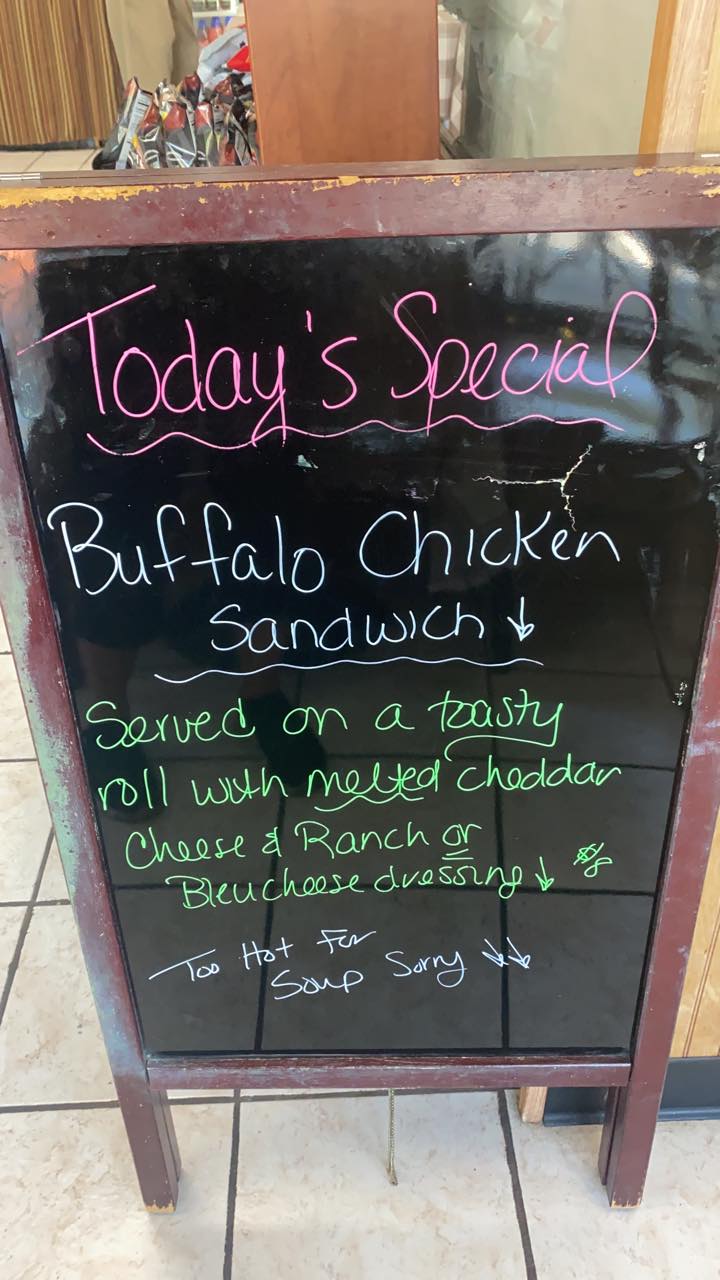 Today's Special
Buffalo Chicken
Sandwich ↓
Served on a toasty
roll with melted cheddar
Cheese & Ranch or
Bleucheese dressing ↓
Too Hot For
Soup Sorry ↓↓